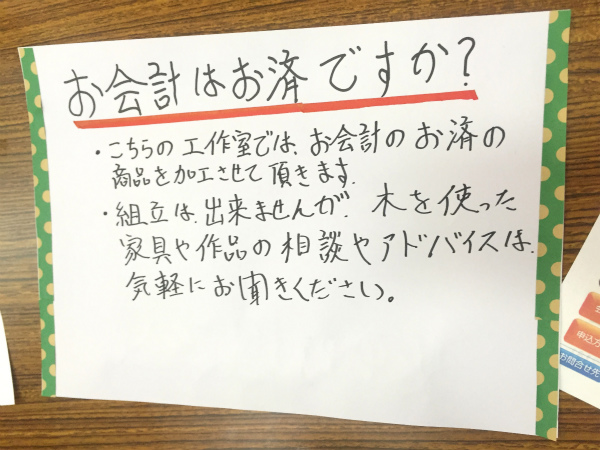 お会計はお済ですか?
・こちらの工作室では、お会計のお済の
商品を加工させて頂きます.
・組立は出来ませんが、木を使った
家具や作品の相談やアドバイスは、
気軽にお聞きください。
申込方
お問合せ先